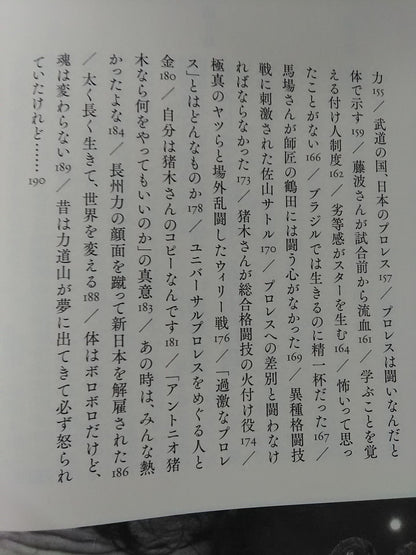 力155／武道の国、日本のプロレス157／プロレスは闘いなんだと
体で示す159／藤波さんが試合前から流血161／学ぶことを覚
える付け人制度162／劣等感がスターを生む164／怖いって思っ
たことがない166／ブラジルでは生きるのに精一杯だった167／
馬場さんが師匠の鶴田には闘う心がなかった169／異種格闘技
戦に刺激された佐山サトル170／プロレスへの差別と闘わなけ
ればならなかった173／猪木さんが総合格闘技の火付け役174／
極真のヤツらと場外乱闘したウィリー戦176／「過激なプロレ
ス」とはどんなものか178／ユニバーサルプロレスをめぐる人と
金180／自分は猪木さんのコピーなんです181／「アントニオ猪
木なら何をやってもいいのか」の真意183／あの時は、みんな熱
かったよな184／長州力の顔面を蹴って新日本を解雇された186
／太く長く生きて、世界を変える188／体はボロボロだけど、
魂は変わらない189／昔は力道山が夢に出てきて必ず怒られ
ていたけれど……190